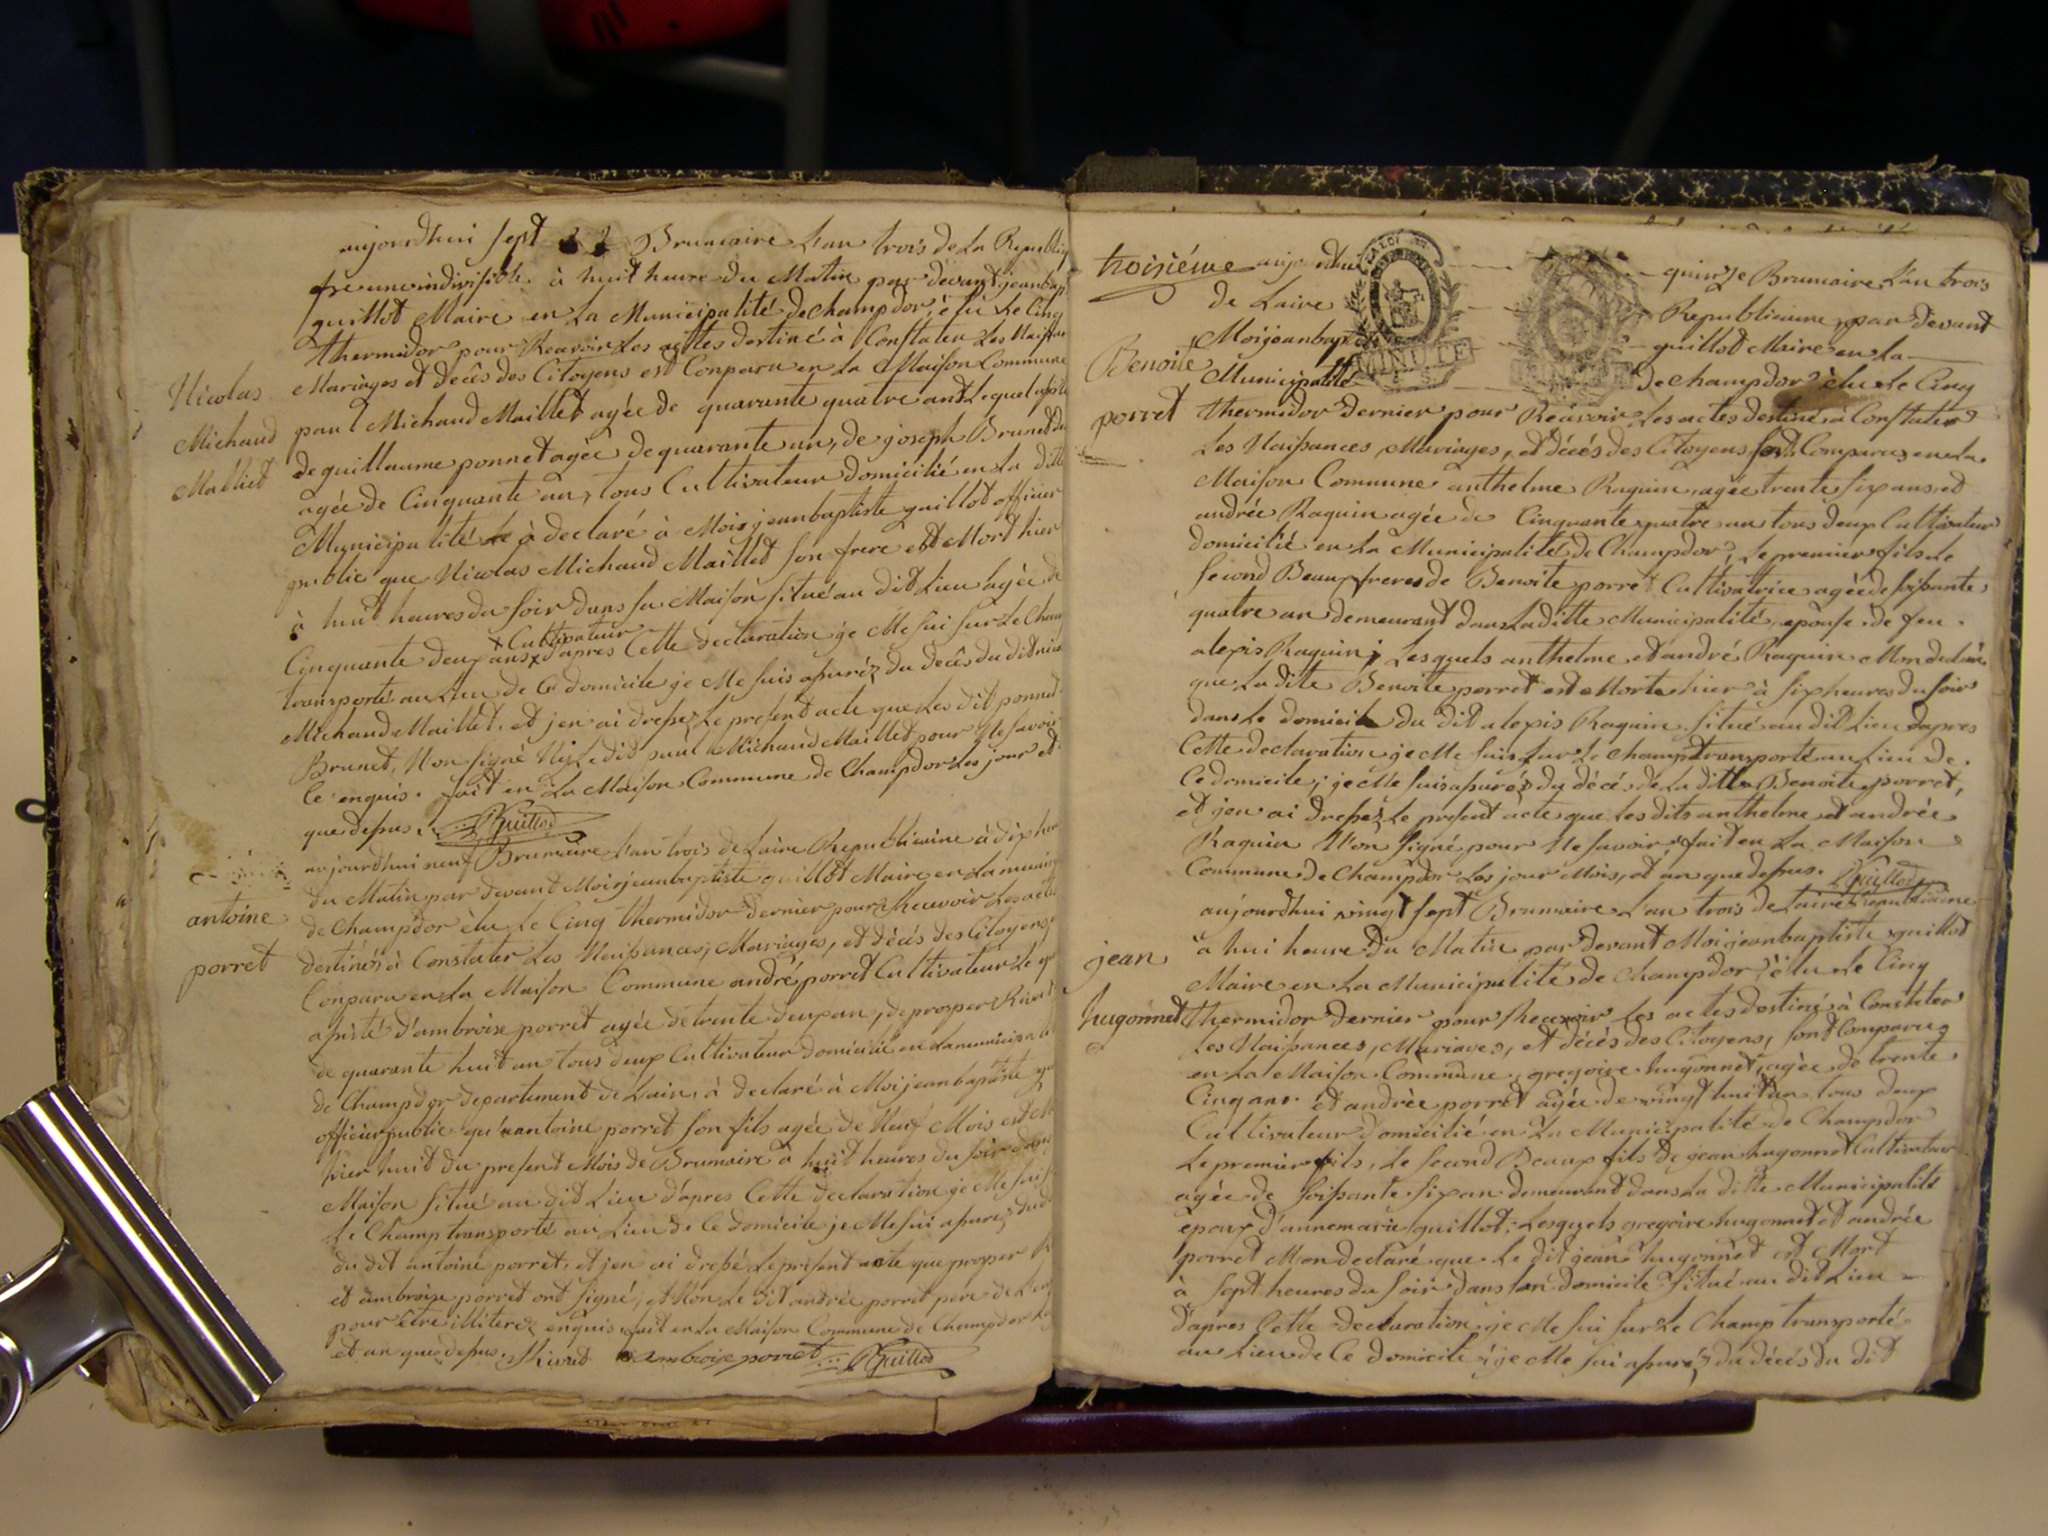 aujourdhui sept Brumaire L'an trois de La Republiq
fse une indivisible à huit heure du Matin par devant jeanbap
guillot Maire en La Municipalité de Champdor, élu Le Cinq
thermidor pour Recevoir Les acttes destiné à Constater Les Naissan
Mariages et decês des Citoyens est Conparu en La Maison Commune
Nicolas
Michaud
Malliet
paul Michaud Maillet agée de quarante quatre ans Lequel assisté
de guillaume ponnet agée de quarante an, de joseph Brunet du
agée de Cinquante an, tous Cultivateur domicilié en La ditte
Municipalité à declaré à Moi jeanbaptiste guillot officier
public que Nicolas Michaud Maillet son frere est Mort hier
à huit heures du soir dans sa Maison situé au dit Lieu agée de
Cultivateur
Cinquante deux ans d'apres Cette declaration je Me sui sur Le Cham
transporté au Lieu de Ce domicile je Me suis assuréz du decês du dit nico
Michaud Maillet. et jen ai dressez Le present acte que Les dit ponnet
Brunet, Non signé Ni Le dit paul Michaud Maillet pour Ne savoir
Ce enquis. fait en La Maison Commune de Champdor Les jour et
que dessus. Guillot
aujourdhui neuf Brumaire L'an trois de Laire Republicaine à dix heur
du Matin par devant Moi jeanbaptiste guillot Maire en La munici
antoine
porret
de Champdor élu Le Cinq thermidor dernier pour Recevoir Les acte
destinés à Constater Les Naissances, Mariages, et décés des Citoyens
Conparu en La Maison Commune andré porret Cultivateur Le q
assisté d'ambroise porret agée de trente deux an, de prosper Rivat
de quarante huit an tous deux Cultivateur domicilié en La municipalit
de Champdor departement de Lain, à declaré à Moi jeanbaptiste gu
officier public qu'antoine porret son fils agée de Neuf Mois est M
hier huit du present Mois de Brumaire à huit heures du soir dans
Maison situé au dit Lieu d'apres Cette declaration je Me suis
Le Champ transporté au Lieu de Ce domicile je Me sui assurez du d
du dit antoine porret, et jen ai dressé Le present acte que prosper R
et ambroise porret ont signé, et Non Le dit andrée porret pere de L
pour être illiterez enquis fait en La Maison Commune de Champdor
et an que dessus. Rivat ambroise porret Guillot
troisiéme aujourdhui quinze Brumaire L'an trois
de Laire Republicaine, par devant
Moi jeanbaptiste guillot Maire en La
MINUTE
Benoite
porret
Municipalité de Champdor élu Le Cinq
thermidor dernier pour Recevoir Les actes destiné à Constater
Les Naissances, Mariages, et décés des Citoyens sont Comparus en La
Maison Commune anthelme Raquin, agée trente six ans, et
andrée Raquin agée de Cinquante quatre an tous deux Cultivateur
domicilié en La Municipalité de Champdor, Le premier fils Le
second Beaux freres de Benoite porret Cultivatrice agée de soissante
quatre an demeurant dans La ditte Municipalité, epouse de feu
alexis Raquin; Lesquels anthelme et andré Raquin M'on declaré
que La ditte Benoite porret est Morte hier à six heures du soir
dans Le domicile du dit alexis Raquin situé au dit Lieu dapres
Cette declaration je Me suis sur Le champ transporté au Lieu de
Ce domicile; je Me suis assuréz du décés de La ditte Benoite porret,
et jen ai dressez Le present acte que Les dits anthelme et andrée
Raquin N'on signé pour Ne savoir, fait en La Maison
Commune de Champdor Les jour Mois, et an que dessus. Guillot
aujourdhui vingt sept Brumaire L'an trois de Laire Republicaine
jean
hugonnet
a hui heure du Matin par devant Moi jeanbaptiste guillot
Maire en La Municipalité de Champdor élu Le Cinq
thermidor dernier pour Recevoir Les actes destiné à Constater
Les Naissances, Mariages, et décés des Citoyens, sont Comparus
en La Maison Commune, gregoire hugonnet, agée de trente
Cinq ans. et andrée porret agée de vingt huit an tous deux
Cultivateur domicilié en La Municipalité de Champdor
Le premier fils, Le second Beaux fils de jean hugonnet Cultivateur
agée de soissante six an demeurant dans La ditte Municipalité
epoux d'annemarie guillot; Lesquels gregoire hugonnet et andrée
porret M'on declaré que Le dit jean hugonnet est Mort
à sept heures du soir dans son domicile situé au dit Lieu
d'apres Cette declaration je Me sui sur Le Champ transporté
au Lieu de Ce domicile; je Me sui assuréz du décés du dit